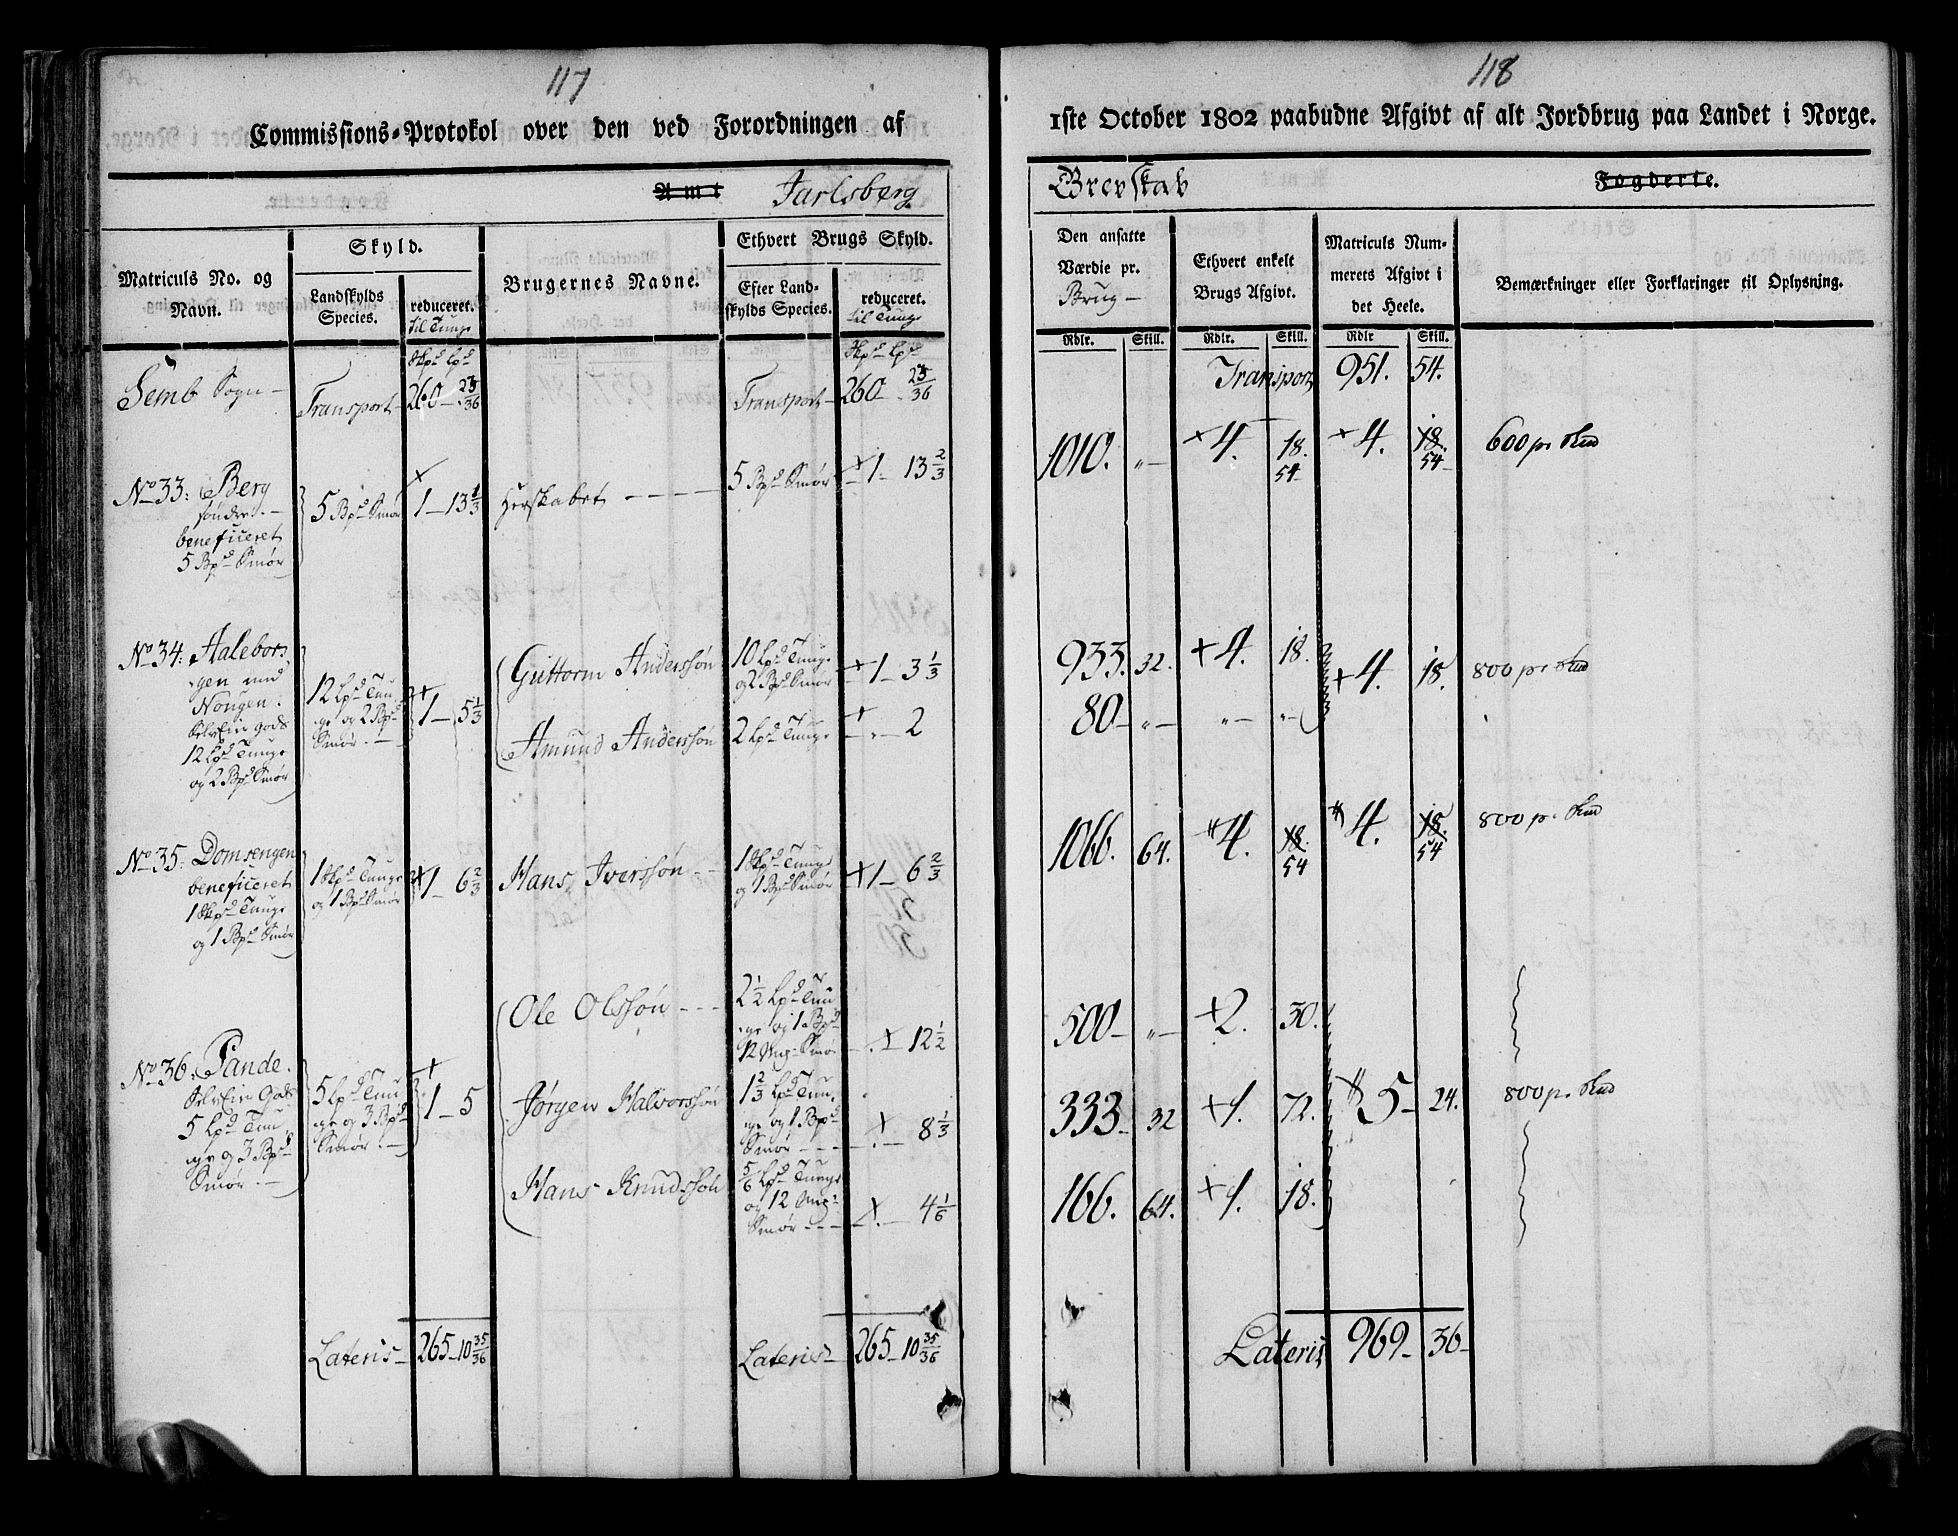 117
Commissions-Protokol over den ved Forordningen af
Amt Jarlsberg
Matriculs No. og Navn.
Skyld.
Landskylds Species.
reduceret. til Tunge
Brugernes Navne.
Ethvert Brugs Skyld.
Efter Landskylds Species.
reduceret. til Tunge
Semb Sogn —
Transport —
260 — 23/36
Transport —
260 — 23/36
No 33: Berg
søndre. —
beneficeret
5 Bpd Smør
5 Bpd Smør
1 — 13 1/3
Herskabet — — — —
5 Bpd Smør
1 — 13 2/3
No 34: Aalebors-
gen med
Nongen.
SelvEier Gods
12 Lpd Tunge
og 2 Bpd Smør
12 Lpd Tun-
ge og 2 Bpd
Smør. —
1 — 5 1/3
Guttorm Anderssøn
10 Lpd Tunge
og 2 Bpd Smør
1 — 3 1/3
Amund Anderssøn
2 Lpd Tunge
— „ — 2
No 35: Domsengen
beneficeret
1 Skpd Tunge
og 1 Bpd Smør
1 Skpd Tunge
og 1 Bpd Smør
1 — 6 2/3
Hans Iverssøn — —
1 Skpd Tunge
og 1 Bpd Smør
1 — 6 2/3
No 36. Sande.
SelvEier Gods
5 Lpd Tun-
ge og 3 Bpd
Smør. —
5 Lpd Tun-
ge og 3 Bpd
Smør. —
1 — 5
Ole Olssøn — — —
2 1/2 Lpd Tun-
ge og 1 Bpd
12 Mrg Smør
12 1/2
Jørgen Halvorssøn
1 2/3 Lpd Tun-
ge og 1 Bpd
Smør — — —
8 1/3
Hans Knudssøn
5/6 Lpd Tunge
og 12 Mrg
Smør — — —
4 1/6
Lateris —
265 — 10 35/36
Lateris —
265 — 10 35/36
118
1ste October 1802 paabudne Afgivt af alt Jordbrug paa Landet i Norge.
Grevskab
Fogderie.
Den ansatte Værdie pr. Brug —
Ethvert enkelt Brugs Afgivt.
Matriculs Nummerets Afgivt i det Heele.
Bemærkninger eller Forklaringer til Oplysning.
Rdlr. Skill. Rdlr. Skill. Rdlr Skill.
Transport 951. 54.
1010. „ — + 4. 18. + 4. 18. 600 pr.
54 54 —
933. 32. + 4. 18. + 4. 18. 800 pr.
80 — „ — „ — „ —
1066. 64. 4. 18. 4. 18. 800 pr.
54 54
500 — „ — + 2. 30.
333 — 32 + 1. 72. 5 — 24. 800 pr.
166. 64. + 1. 18.
Lateris 969 — 36 —